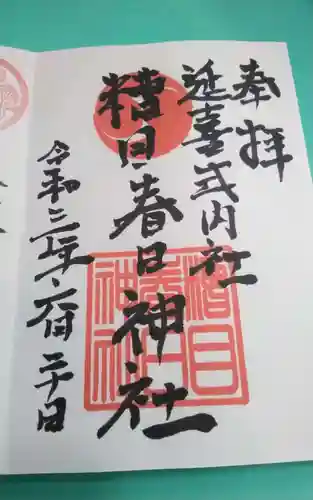 奉拝
延喜式内社
糟目春日神社
令和三年六月二十日
糟目
春日
神社